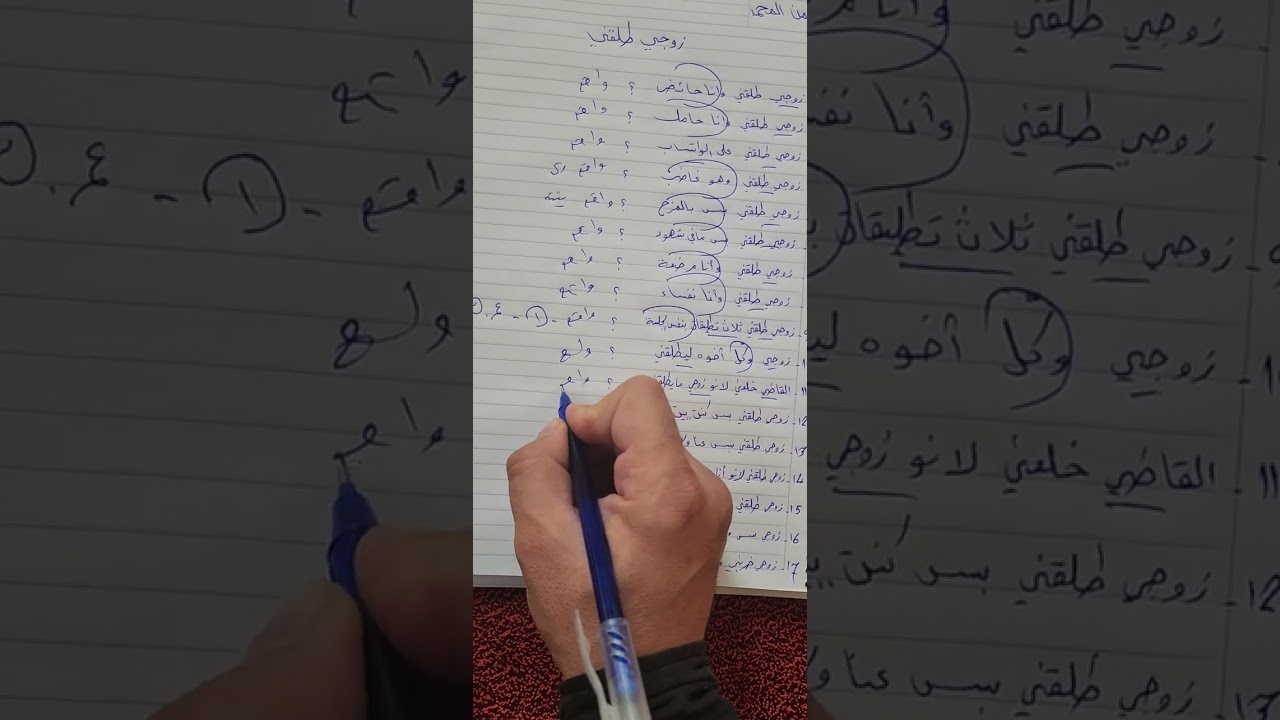 من المحمـ
زوجي طلقني
زوجي طلقني وأنا حائض ؟ واقع
زوجي طلقني وأنا حامل ؟ واقع
زوجي طلقني على الواتساب ؟ واقع
زوجي طلقني وهو غاضب ؟ واقع
زوجي طلقني بس بالمزح ؟ واقع
زوجي طلقني بس مافي شهود ؟ واقع
زوجي طلقني وأنا مرضعة ؟ واقع
زوجي طلقني وأنا نفساء ؟ واقع
9- زوجي طلقني ثلاث تطليقات بنفس الكلمة ؟ واقع - 1 - ع.
زوجي وكل أخوه ليطلقني ؟
11- القاضي خلعني لانو زوجي مايطلقني ؟ واقع
12- زوجي طلقني بس كنت
13- زوجي طلقني بس
14- زوجي طلقني لانو أنا
15- زوجي طلقني
16- زوجي بس
17- زوجي ضربني